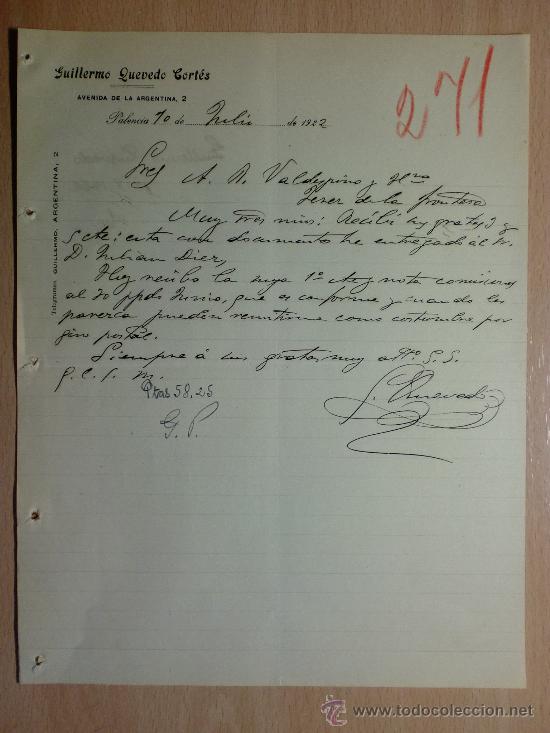 Guillermo Quevedo Cortés
AVENIDA DE LA ARGENTINA, 2
271
Palencia 10 de Julio de 1922
Telegramas GUILLERMO, ARGENTINA, 2
Sres A. R. Valdespino y Hno
Jerez de la frontera
Muy Sres mios: Recibí sus gratas 3 y
5 Act. cuenta con documento he entregado al Sr.
D. Julian Diez,
Hoy recibo la suya 1º Act y nota comisiones
al 30 ppdo Junio, que es conforme y cuando les
parezca pueden remitirme como costumbre por
giro postal.
Siempre á sus gratas muy atto. S. S.
q. e. s. m.
Ptas 58,25
G. Quevedo
G. P.
todocoleccion
todocoleccion.net